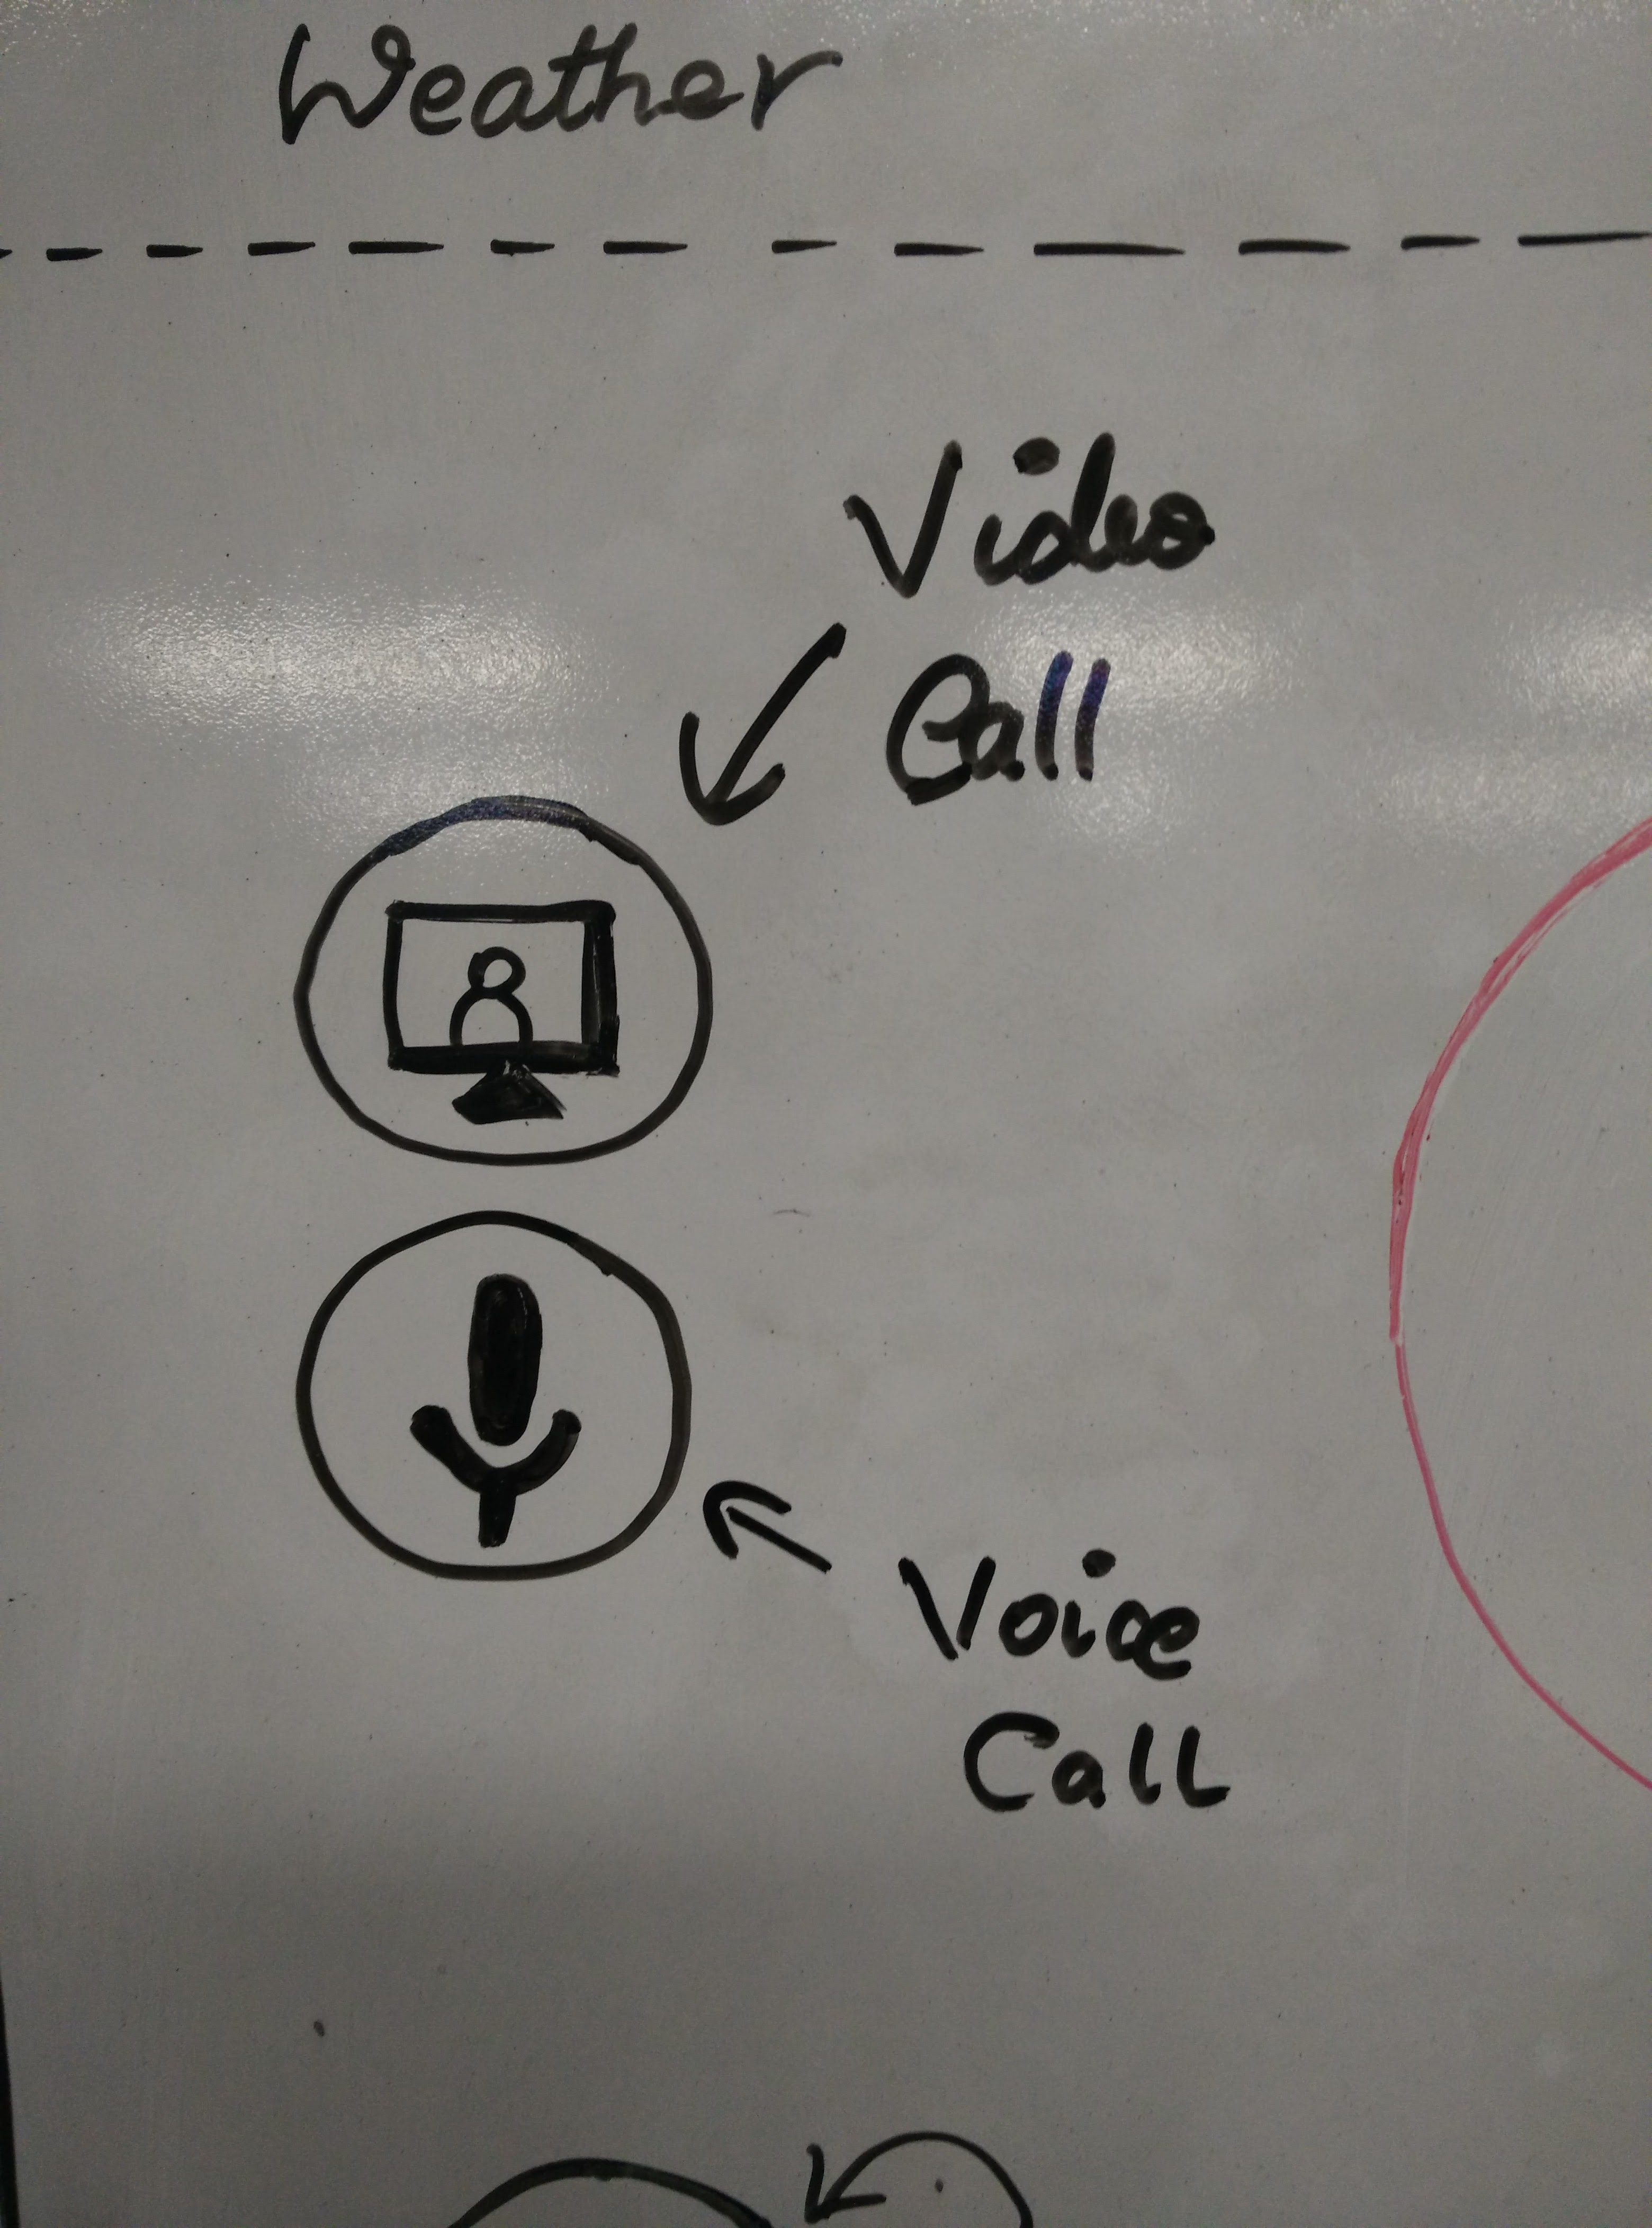 Weather
Video
Call
Voice
Call